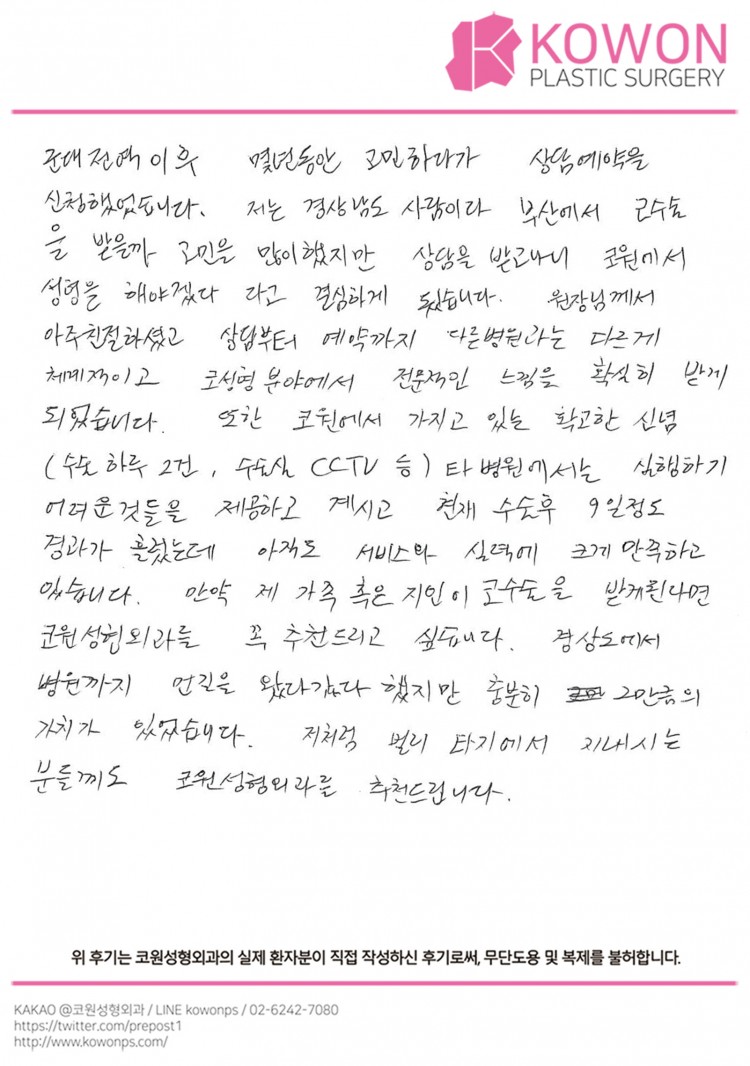 KOWON
PLASTIC SURGERY
군대 전역 이후 몇년동안 고민하다가 상담예약을
신청했었습니다. 저는 경상남도 사람이라 부산에서 코수술
을 받을까 고민을 많이했지만 상담을 받고나니 코원에서
성형을 해야겠다 라고 결심하게 됬습니다. 원장님께서
아주친절하셨고 상담부터 예약까지 다른병원과는 다르게
체계적이고 코성형 분야에서 전문적인 느낌을 확실히 받게
되었습니다. 또한 코원에서 가지고 있는 확고한 신념
(수술 하루 2건, 수술실 CCTV 등) 타 병원에서는 실행하기
어려운것들을 제공하고 계시고 현재 수술후 9일정도
경과가 흘렀는데 아직도 서비스와 실력에 크게 만족하고
있습니다. 만약 제 가족 혹은 지인이 코수술을 받게된다면
코원성형외과를 꼭 추천드리고 싶습니다. 경상도에서
병원까지 먼길을 왔다갔다 했지만 충분히 그만큼의
가치가 있었습니다. 저처럼 멀리 타지에서 지내시는
분들께도 코원성형외과를 추천드립니다.
위 후기는 코원성형외과의 실제 환자분이 직접 작성하신 후기로써, 무단도용 및 복제를 불허합니다.
KAKAO @코원성형외과 / LINE kowonps / 02-6242-7080
https://twitter.com/prepost1
http://www.kowonps.com/